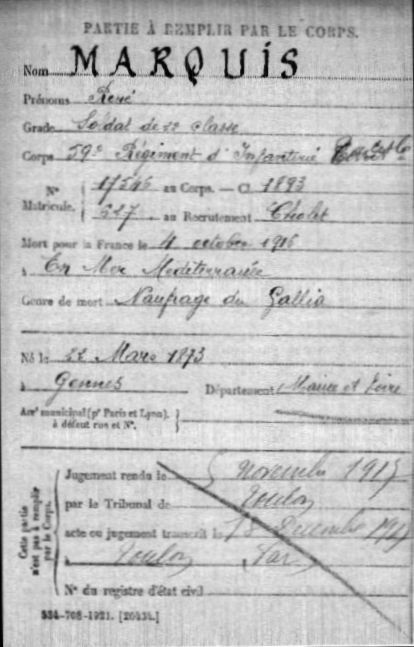 PARTIE À REMPLIR PAR LE CORPS.
Nom MARQUIS
Prénoms René
Grade Soldat de 2e classe
Corps 59e Régiment d'Infanterie
N° 17545 au Corps. — Cl. 1893
Matricule. 527 au Recrutement Cholet
Mort pour la France le 4 octobre 1916
à En Mer Méditerranée
Genre de mort Naufrage du Gallia
Né le 22 Mars 1873
à Gennes Département Maine et Loire
Arrt municipal (pr Paris et Lyon),
à défaut rue et N°.
Cette partie n'est pas à remplir par le Corps.
Jugement rendu le 5 novembre 1917
par le Tribunal de Toulon
acte ou jugement transcrit le 13 Décembre 1917
à Toulon Var
N° du registre d'état civil
534-708-1921. [26434.]